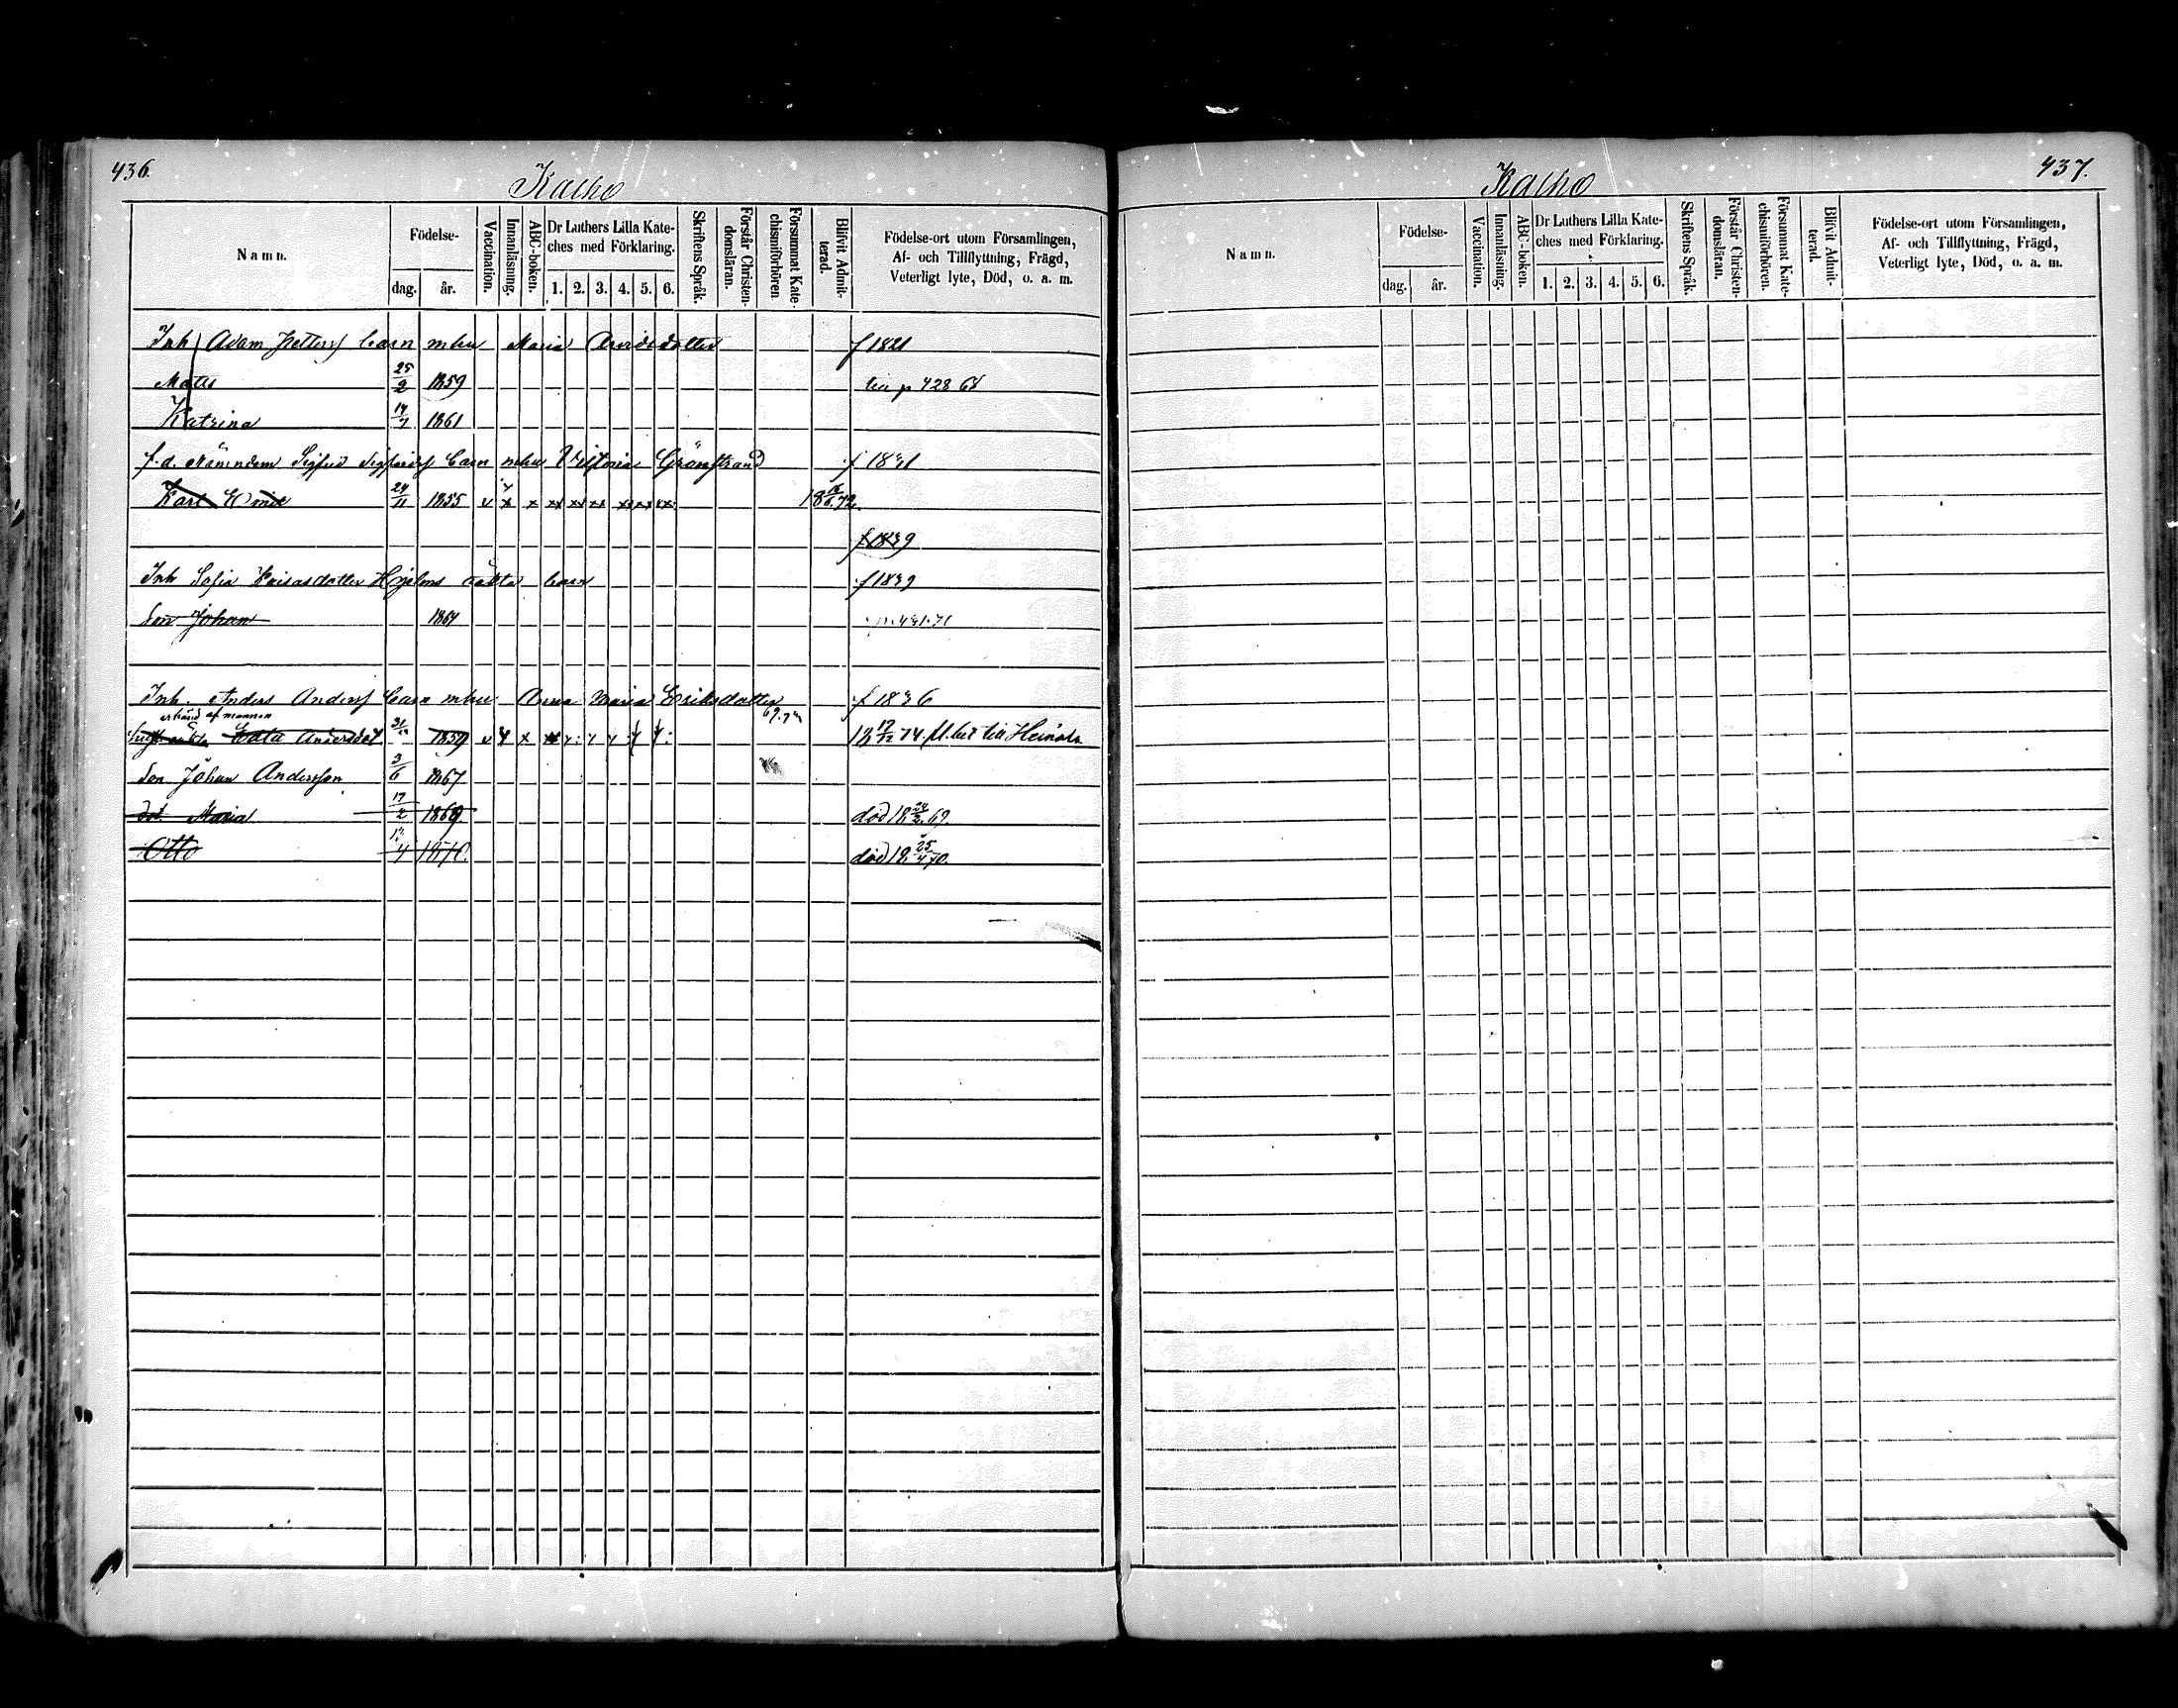 436.
Kaiho
Namn.
Födelse-
dag.
år.
Vaccination.
Innanläsning.
ABC-boken.
Dr Luthers Lilla Kate-
ches med Förklaring.
1. 2. 3. 4. 5. 6.
Skriftens Språk.
Förstår Christen-
domsläran.
Försummat Kate-
chismiförhören
Blifvit Admit-
terad.
Födelse-ort utom Församlingen,
Af- och Tillflyttning, Frägd,
Veterligt lyte, Död, o. a. m.
Inh Adam Petterss barn mhu Maria Arvidsdotter f 1821
Matts 25/2 1859 p 428 68
Katrina 1861
f. d. Sigfrid Sigfridss barn mhu Viktoria Grönstrand f 1831
Karl Emil 24/11 1855 v x x x x x x x x 72.
f 1839
Inh Sofia Kaisasdotter Hjelms oäkta barn f 1839
Son Johan 1864 p. 431. 71
Inh. Anders Anderss barn mhu Anna Maria Eriksdotter f 1836
erkänd af mannen
Eata Andersdot 1859 18 17/12 74 fl. bet till Heinola
Son Johan Andersson 3/6 1867
dot Maria 17/2 1869 död 18 24/2 69.
Otto 1870. död 18 25/4 70.
437.
Kaiho
Namn.
Födelse-
dag.
år.
Vaccination.
Innanläsning.
ABC-boken.
Dr Luthers Lilla Kate-
ches med Förklaring.
1. 2. 3. 4. 5. 6.
Skriftens Språk.
Förstår Christen-
domsläran.
Försummat Kate-
chismiförhören.
Blifvit Admit-
terad.
Födelse-ort utom Församlingen,
Af- och Tillflyttning, Frägd,
Veterligt lyte, Död, o. a. m.